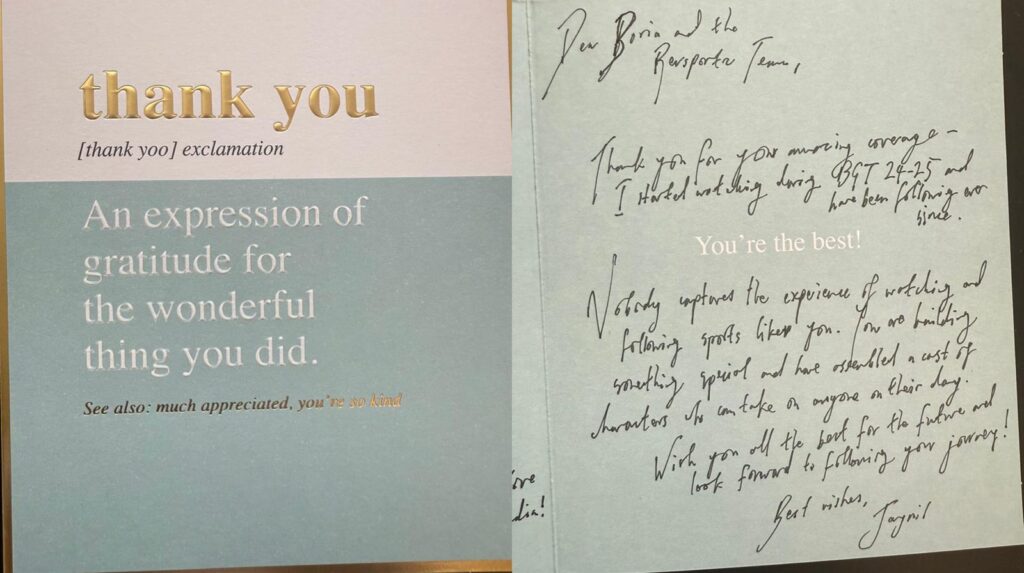 thank you
[thank yoo] exclamation
An expression of
gratitude for
the wonderful
thing you did.
See also: much appreciated, you're so kind
Dear Boria and the
Revsportz Team,
Thank you for your amazing coverage –
I started watching during BGT 24-25 and
have been following ever
since.
You're the best!
Nobody captures the experience of watching and
following sports like you. You are building
something special and have assembled a cast of
characters who can take on anyone on their day.
Wish you all the best for the future and
look forward to following your journey!
Best wishes,